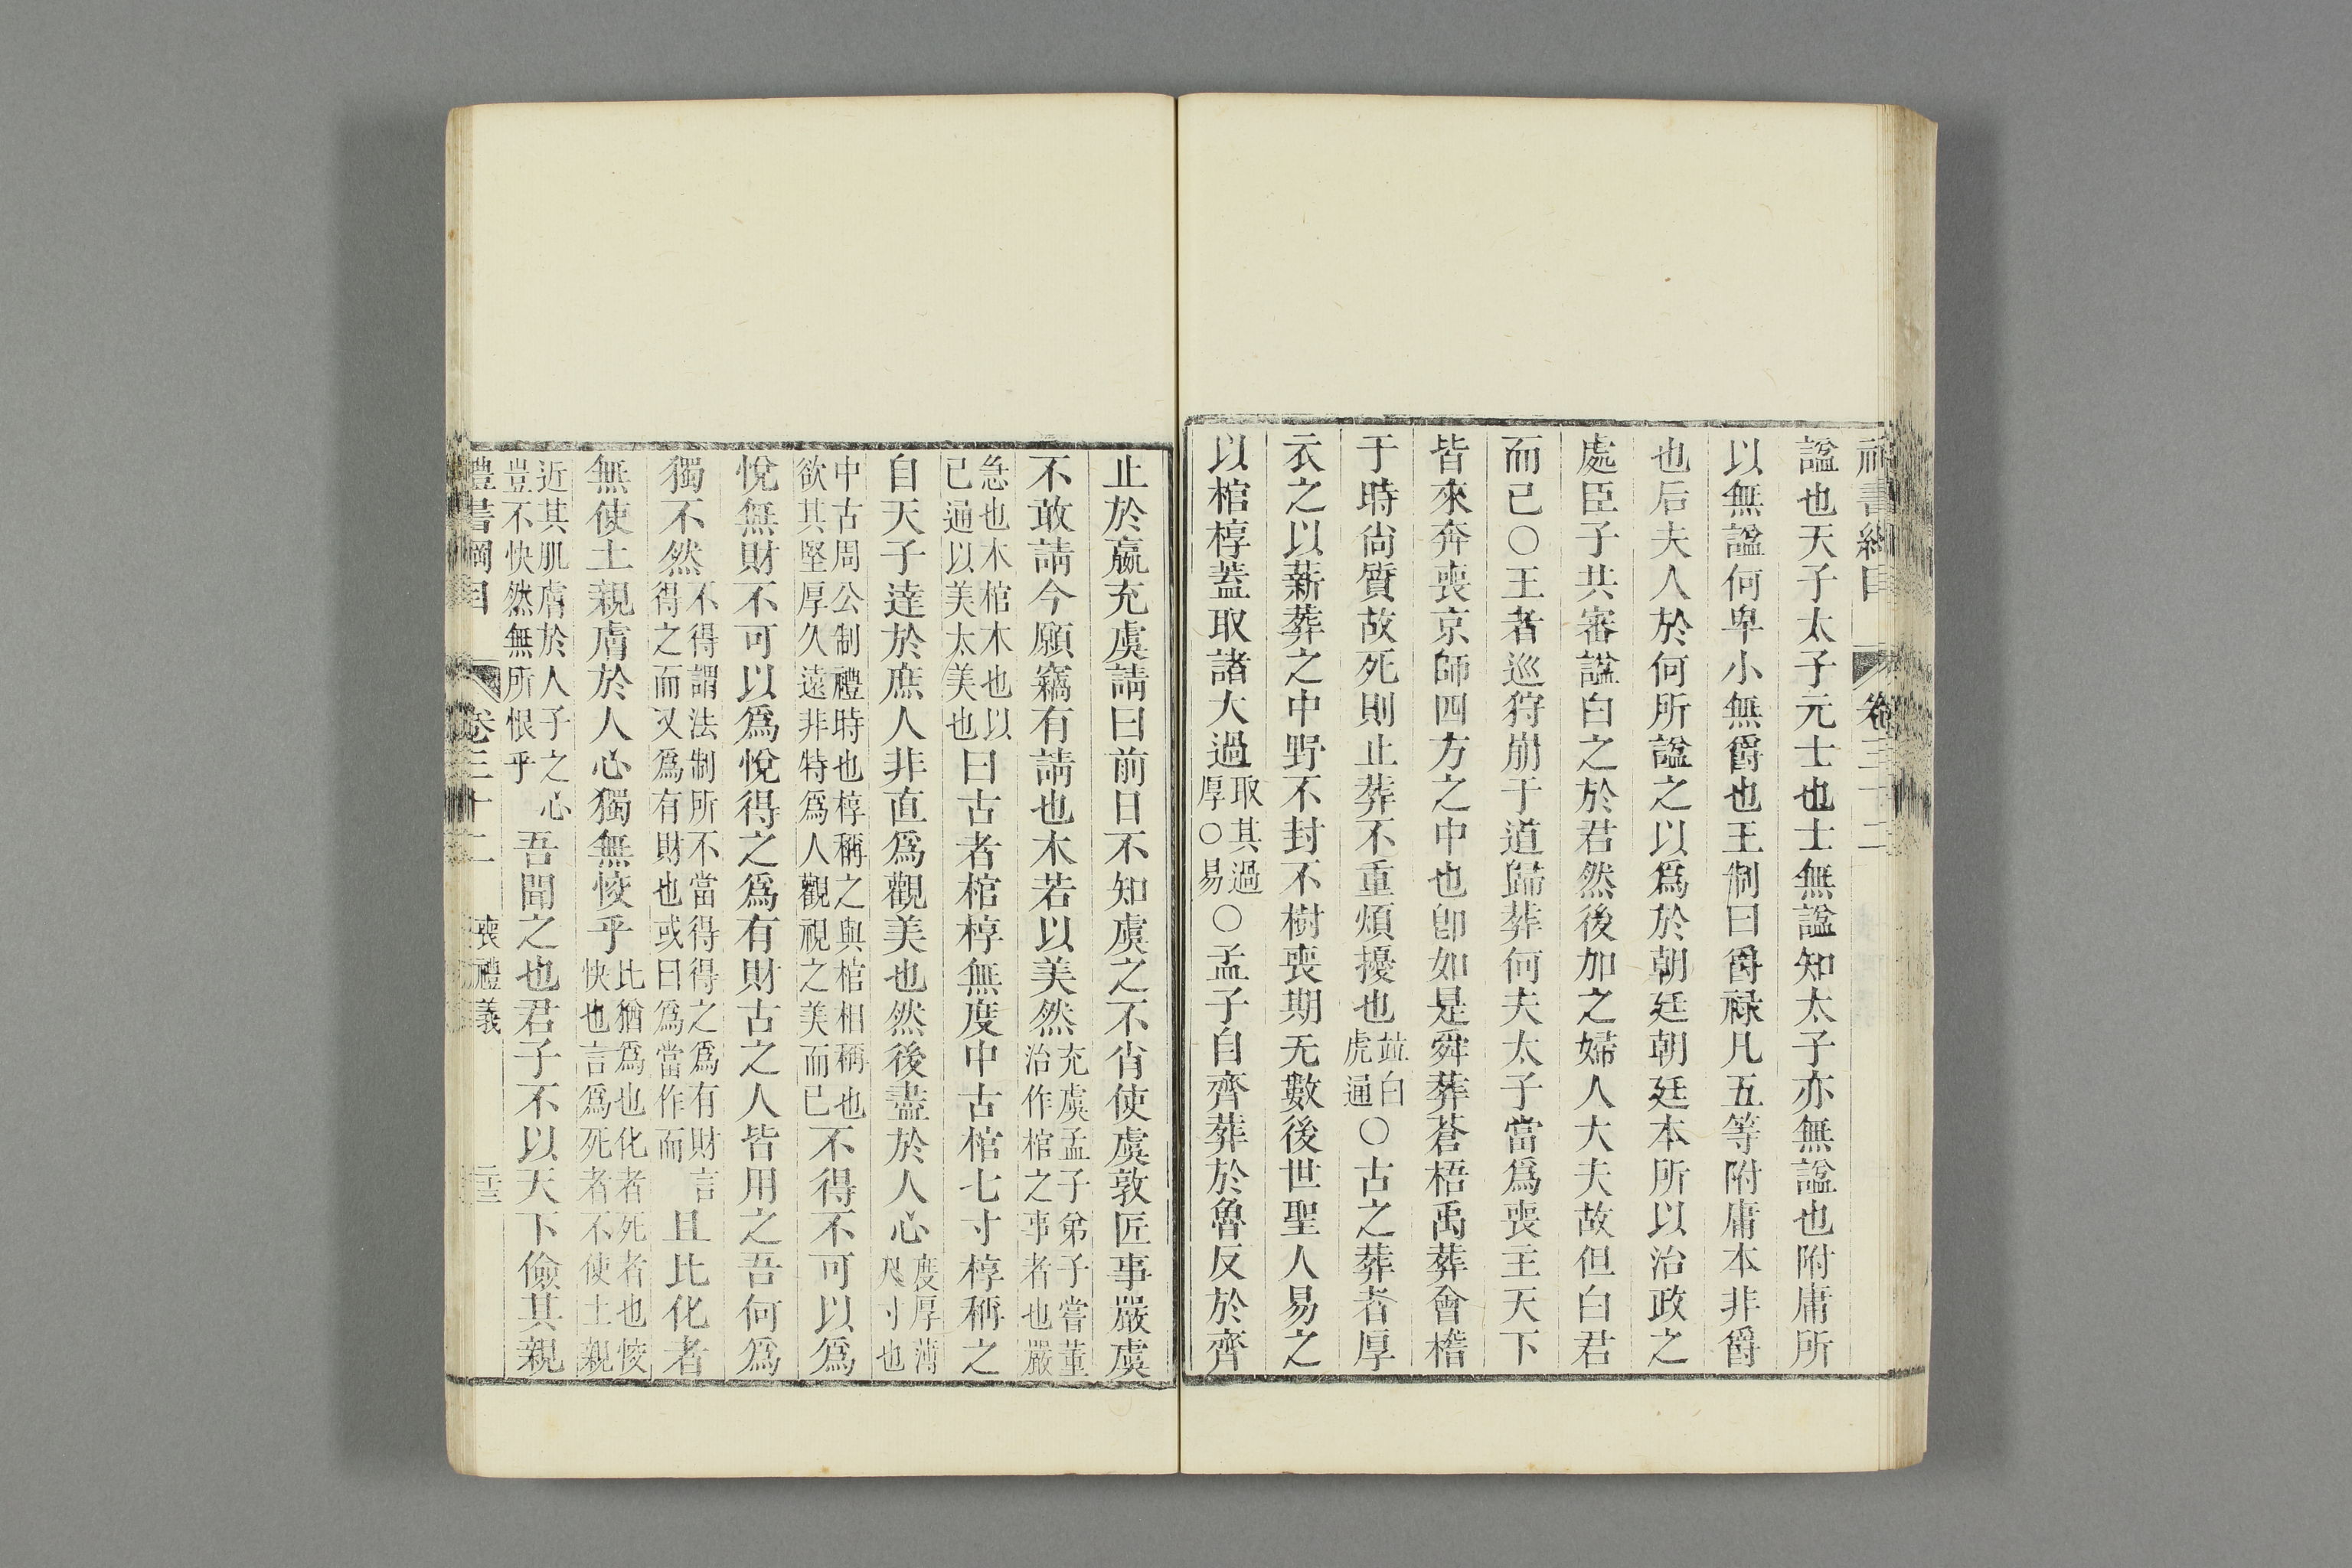 禮書綱目 卷三十二
諡也天子太子元士也士無諡知太子亦無諡也附庸所
以無諡何卑小無爵也王制曰爵祿凡五等附庸本非爵
也后夫人於何所諡之以爲於朝廷朝廷本所以治政之
處臣子共審諡白之於君然後加之婦人大夫故但白君
而已○王者巡狩崩于道歸葬何夫太子當爲喪主天下
皆來奔喪京師四方之中也卽如是舜葬蒼梧禹葬會稽
于時尙質故死則止葬不重煩擾也並白虎通○古之葬者厚
衣之以薪葬之中野不封不樹喪期无數後世聖人易之
以棺椁蓋取諸大過取其過厚○易○孟子自齊葬於魯反於齊
止於嬴充虞請曰前日不知虞之不肖使虞敦匠事嚴虞
不敢請今願竊有請也木若以美然充虞孟子弟子嘗董治作棺之事者也嚴
急也木棺木也以已通以美太美也曰古者棺椁無度中古棺七寸椁稱之
自天子達於庶人非直爲觀美也然後盡於人心度厚薄尺寸也
中古周公制禮時也椁稱之與棺相稱也欲其堅厚久遠非特爲人觀視之美而已不得不可以爲
悅無財不可以爲悅得之爲有財古之人皆用之吾何爲
獨不然不得謂法制所不當得得之爲有財言得之而又爲有財也或曰爲當作而且比化者
無使土親膚於人心獨無恔乎比猶爲也化者死者也恔快也言爲死者不使土親
近其肌膚於人子之心豈不快然無所恨乎吾聞之也君子不以天下儉其親
禮書綱目 卷三十二 喪禮義 二十三